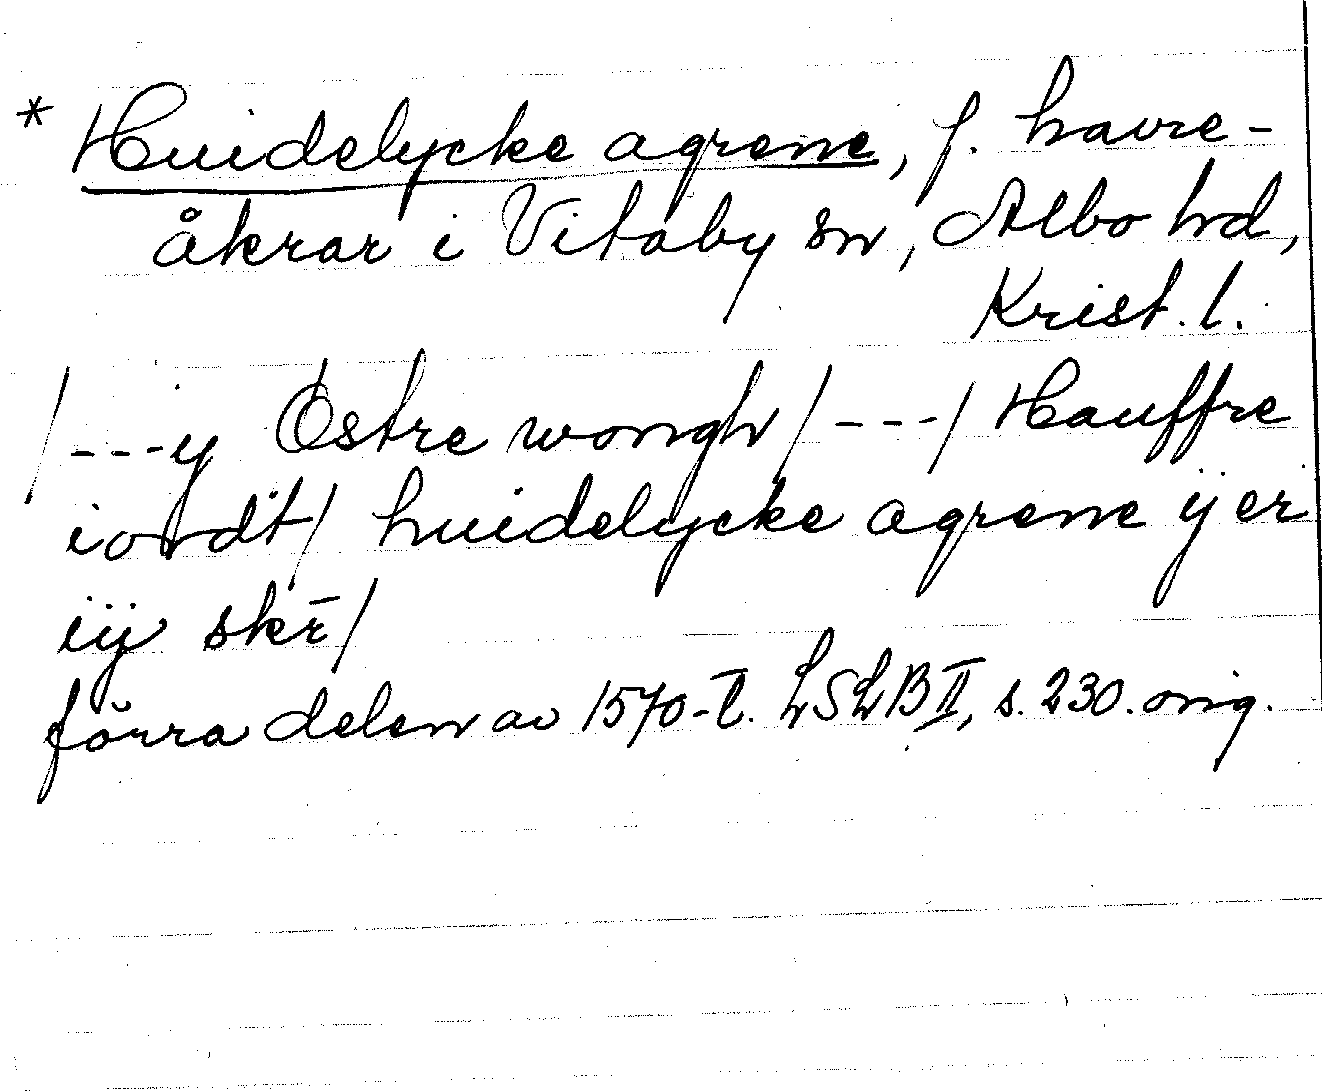 * Huidelycke agrene, f. havre-
åkrar i Vitaby sn, Albo hd,
Krist. l.
/---y Østre wongh/---/ Hauffre
iordt/ huidelycke agrene ij er
iij skr̄/
förra delen av 1570-t. LSLB II, s. 230. orig.